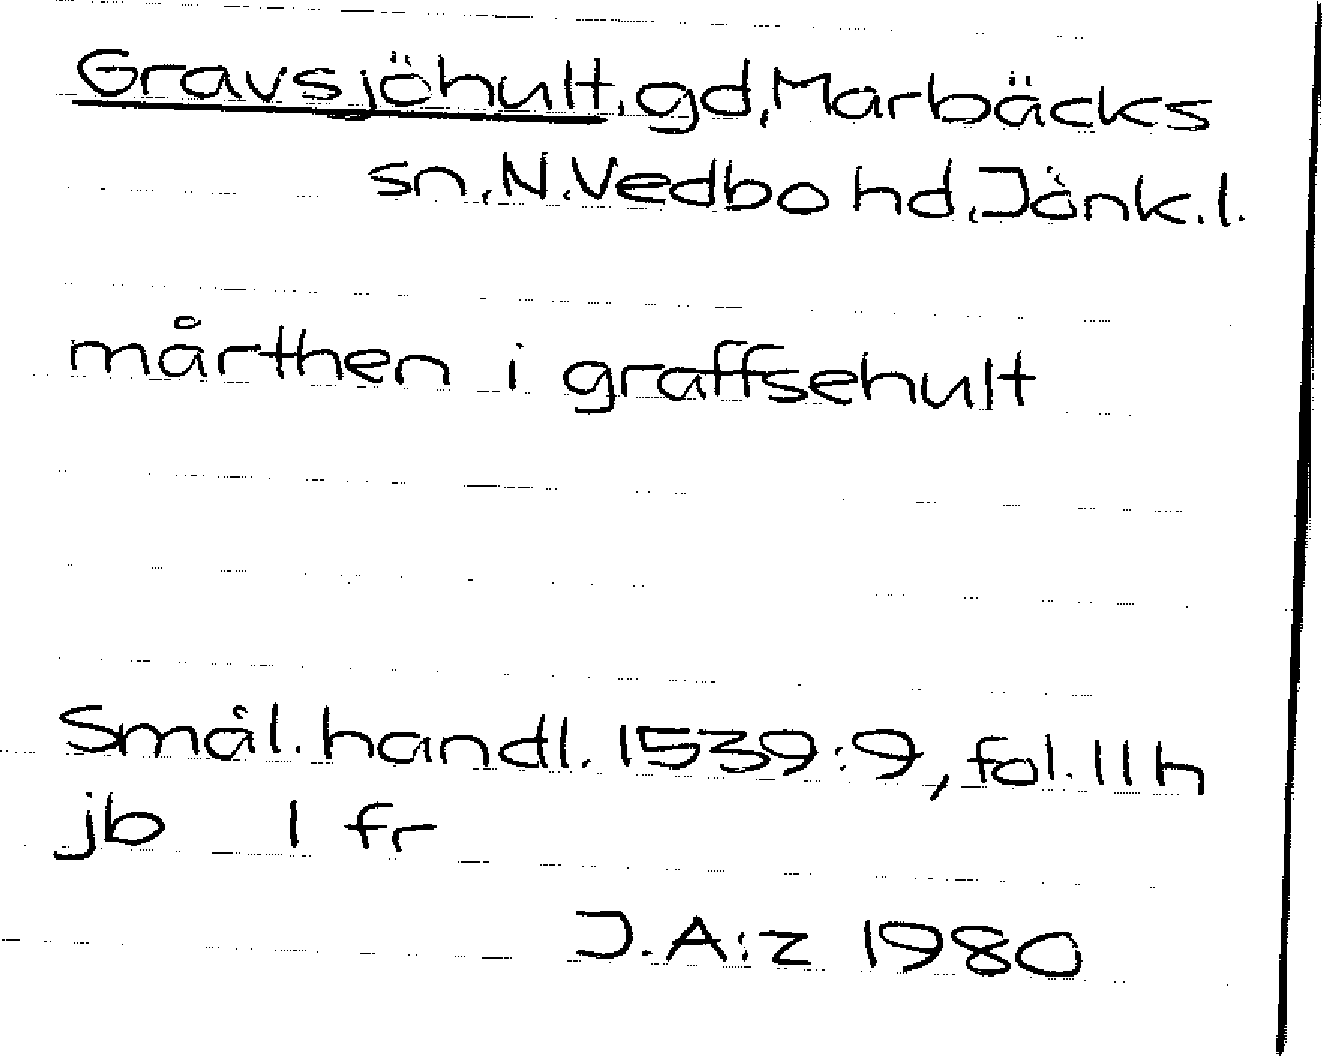 Gravsjöhult, gd, Marbäcks
sn, N. Vedbo hd, Jönk. l.
mårthen i graffsehult
Smål. handl. 1539:9, fol. 11 h
jb 1 fr
J.A:z 1980